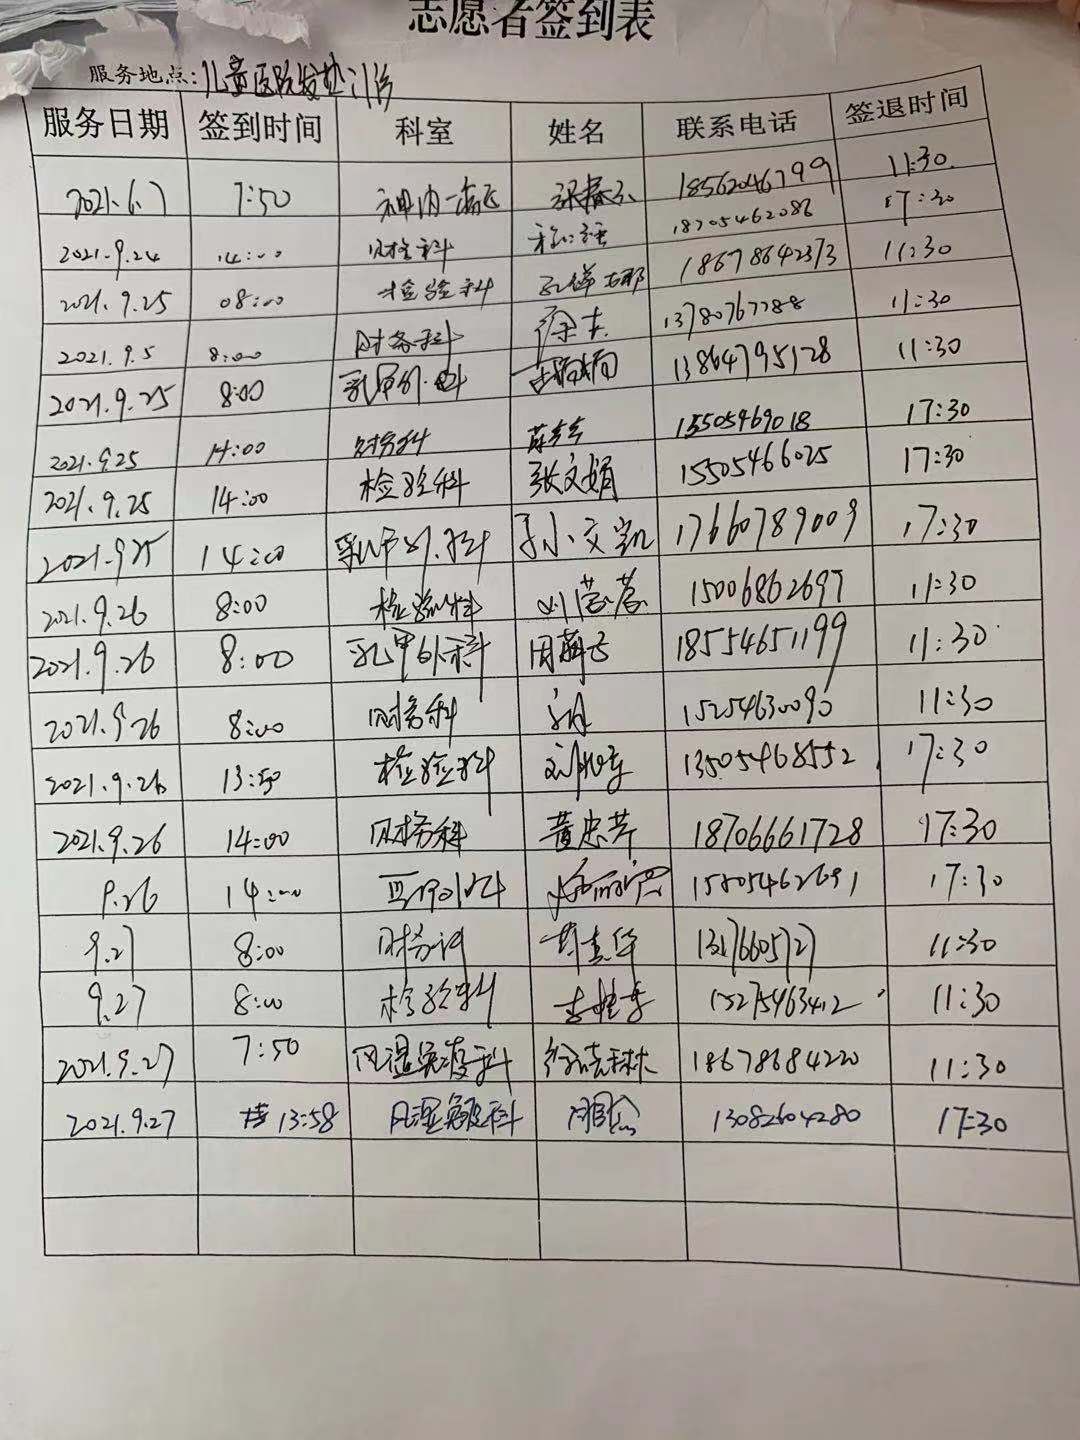 志愿者签到表
服务地点:儿童医院发热门诊
服务日期 签到时间 科室 姓名 联系电话 签退时间
2021.6.7 7:50 神内一 18562046799 11:30
2021.9.24 14:00 财务科 18705462086 17:30
2021.9.25 08:00 检验科 18678642373 11:30
2021.9.5 8:00 财务科 徐杰 13780767288 11:30
2021.9.25 8:00 乳甲外科 13864795128 11:30
2021.9.25 14:00 财务科 15505469018 17:30
2021.9.25 14:00 检验科 张文娟 15505466025 17:30
2021.9.25 14:00 乳甲外科 17660789009 17:30
2021.9.26 8:00 检验科 15006862697 11:30
2021.9.26 8:00 乳甲外科 18554651199 11:30
2021.9.26 8:00 财务科 15254630090 11:30
2021.9.26 13:50 检验科 13505468552 17:30
2021.9.26 14:00 财务科 黄忠芹 18706661728 17:30
9.26 14:00 15805462691 17:30
9.27 8:00 财务科 11:30
9.27 8:00 检验科 15275463412 11:30
2021.9.27 7:50 风湿免疫科 徐晓琳 18678684220 11:30
2021.9.27 13:58 风湿免疫科 13082604280 17:30